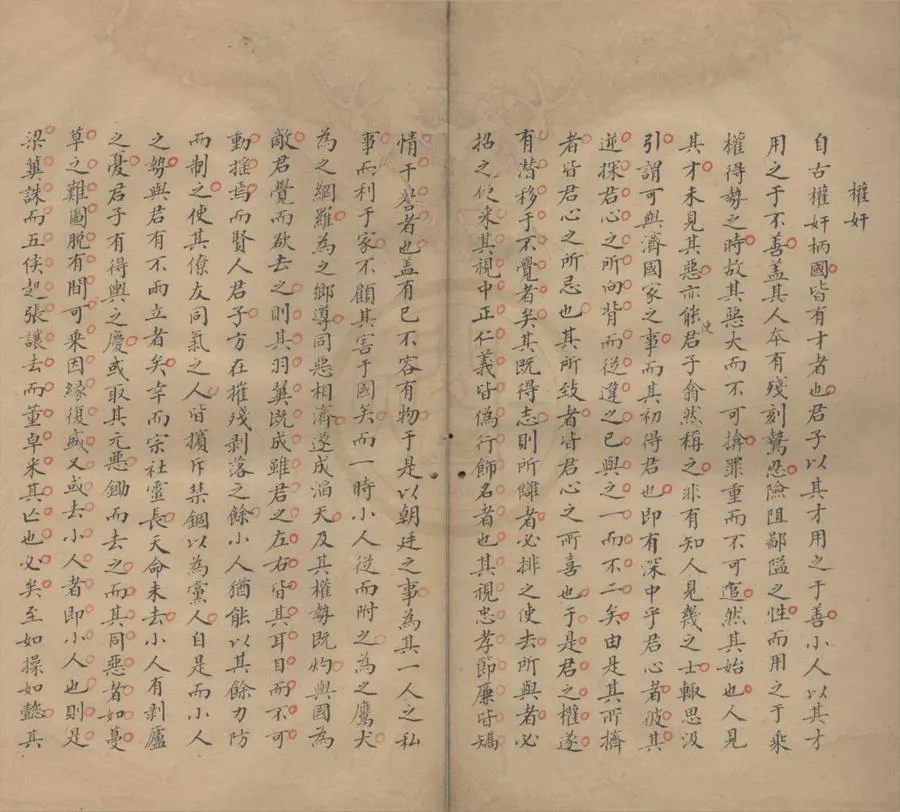 權奸
自古權奸柄國皆有才者也君子以其才用之于善小人以其才
用之于不善盖其人本有殘刻鷙忍險阻鄙隘之性而用之于乘
權得勢之時故其惡大而不可揜罪重而不可逭然其始也人見
其才未見其惡亦能使君子翕然稱之非有知人見幾之士輒思汲
引謂可與濟國家之事而其初得君也即有深中乎君心者彼其
逆探君心之所向背而從違之已與之一而不二矣由是其所擠
者皆君心之所忌也其所致者皆君心之所喜也于是君之權遂
有潜移于不覺者矣其既得志則所讎者必排之使去所與者必
招之使来其視中正仁義皆偽行飾名者也其視忠孝節廉皆矯
情干譽者也盖有已不容有物于是以朝廷之事為其一人之私
事而利于家不顧其害于國矣而一時小人從而附之為之鷹犬
為之網羅為之鄉導同惡相濟遂成滔天及其權勢既灼與國為
敵君覺而欲去之則其羽翼既成雖君之左右皆其耳目而不可
動摇焉而賢人君子方在摧殘剥落之餘小人猶能以其餘力防
而制之使其僚友同氣之人皆擯斥禁錮以為黨人自是而小人
之勢與君有不兩立者矣幸而宗社靈長天命未去小人有剥廬
之憂君子有得輿之慶或取其元惡鋤而去之而其同惡者如蔓
草之難圖脱有間可乘因縁復盛又或去小人者即小人也則是
梁冀誅而五侯起張讓去而董卓来其亡也必矣至如操如懿其